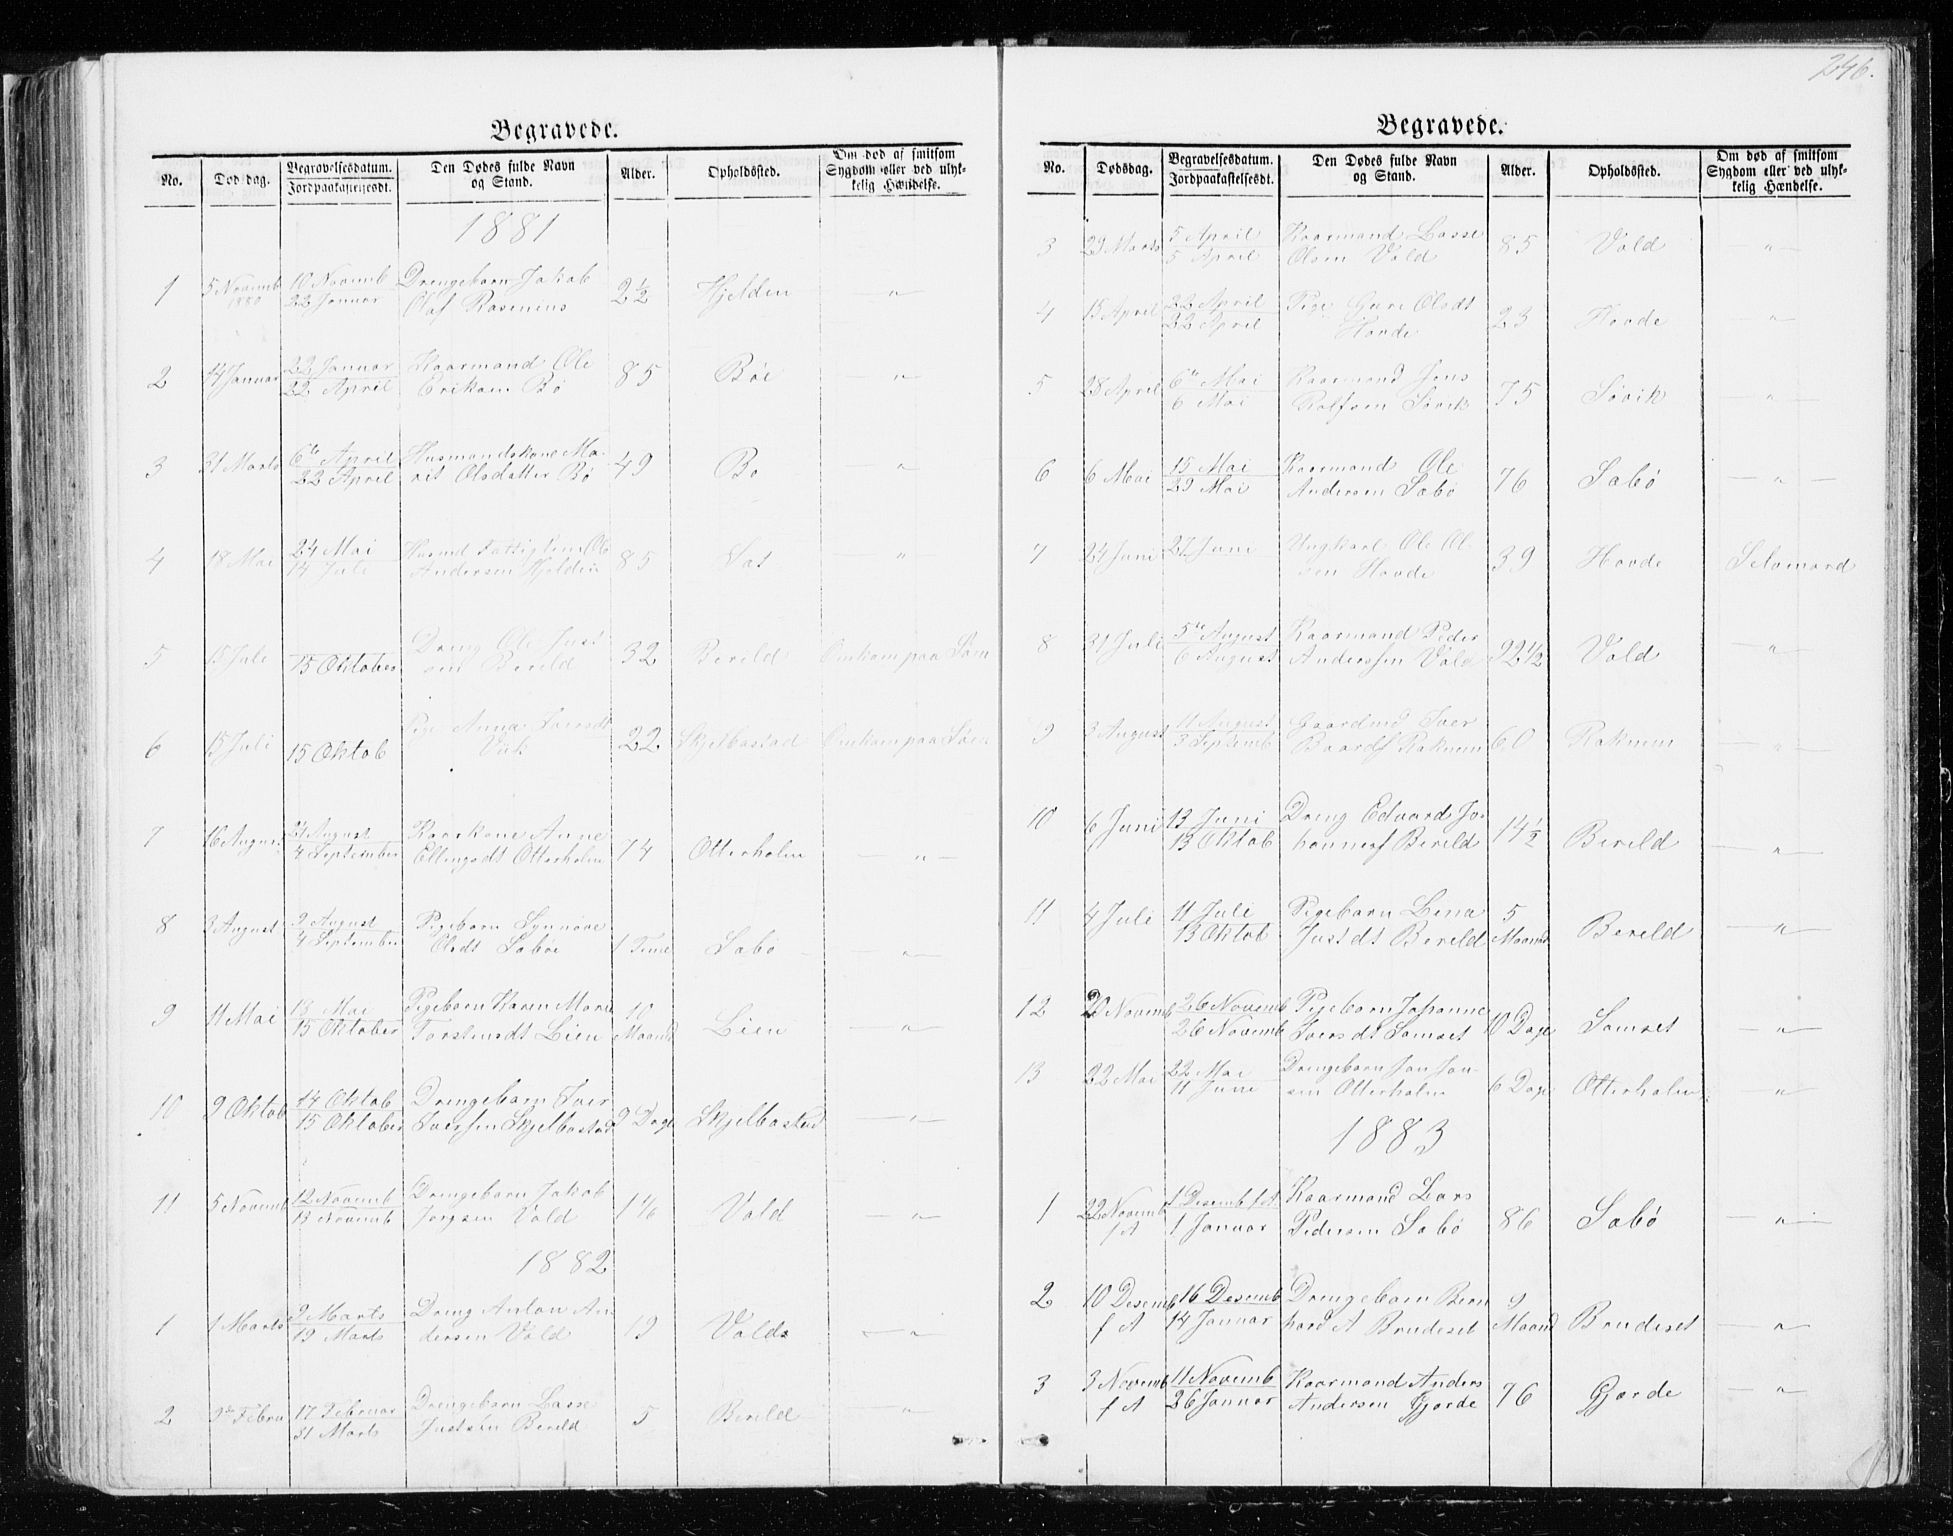 Begravede.
No. Dødsdag. Begravelsesdatum. Jordpaakastelsesdt. Den Dødes fulde Navn og Stand. Alder. Opholdssted. Om død af smitsom Sygdom eller ved ulykkelig Hændelse.
1881
1 5 Novemb 1880 10 Novemb Drengebarn Jakob 2½ Hjelden — " —
22 Januar Olaf Rasenius
2 14 Januar 22 Januar Kaarmand Ole 85 Böe — " —
22 April Eriksen Bö
3 31 Marts 6te April Husmandskone Ma- 49 Bö — " —
22 April rit Olsdatter Bö
4 18 Mai 24 Mai Ole 85 — " —
14 Juli Andersen Hjelden
5 15 Juli Dreng Ole Just 32 Bereld Omkom paa Söen
15 Oktober sen Bereld
6 15 Juli Pige Anna Iversdt 22 Skjelbostad Omkom paa Söen
15 Oktob Vik
7 16 August 21 August Kaarkone Anne 74 Otterholm — " —
4 September Ellingsdt Otterholm
8 3 August 9 August Pigebarn Synnöve 1 Time Sabö — " —
4 September Olsdt Saböe
9 11 Mai 18 Mai Pigebarn Karen Marie 10 Maand Lien — " —
15 Oktober Torstensdt Lien
10 9 Oktob 14 Oktob Drengebarn Iver 2 Dage Skjelbostad — " —
15 Oktober Iversen Skjelbostad
11 5 Novemb 12 Novemb Drengebarn Jakob 1 4/6 Vold — " —
13 Novemb Jorgsen Vold
1882
1 1 Marts 9 Marts Dreng Anton An- 19 Volds — " —
19 Marts dersen Vold
2 9de Febru 17 Februar Drengebarn Lasse 5 Bereld — " —
31 Marts Justsen Bereld
246.
Begravede.
No. Dødsdag. Begravelsesdatum. Jordpaakastelsesdt. Den Dødes fulde Navn og Stand. Alder. Opholdssted. Om død af smitsom Sygdom eller ved ulykkelig Hændelse.
3 29 Marts 5 April Kaarmand Lasse 85 Vold — " —
5 April Olsen Vold
4 15 April 22 April Pige Guri Olsdt 23 Hovde — " —
22 April Hovde
5 28 April 6te Mai Kaarmand Jens 75 Sövik — " —
6 Mai Rolfsen Sövik
6 6 Mai 15 Mai Kaarmand Ole 76 Sabö — " —
29 Mai Andersen Sabö
7 24 Juni 27 Juni Ungkarl Ole Ol 39 Hovde Selvmord
sen Hovde
8 31 Juli 5te August Kaarmand Peder 92½ Vold — " —
6 August Anderssen Vold
9 3 August 11 August Gaardmd Iver 60 Raknem — " —
3 Septemb Baards Raknem
10 6 Juni 13 Juni Dreng Edvard Jo- 14½ Bereld — " —
13 Oktob hannesf Bereld
11 4 Juli 11 Juli Pigebarn Lina 5 Maaned Bereld — " —
13 Oktob Justdt Bereld
12 20 Novemb 26 Novemb Pigebarn Johanne 10 Dage Samset — " —
26 Novemb Iversdt Samset
13 22 Mai 22 Mai Drengebarn Jon Jon- 6 Dage Otterholm — " —
11 Juni sen Otterholm
1883
1 22 Novemb f A 1 Desemb f A Kaarmand Lars 86 Sabö — " —
1 Januar Pedersen Sabö
2 10 Desemb f A 16 Desemb Drengebarn Bern 9 Maand Brudeset — " —
14 Januar hard A Brudeset
3 3 Novemb f A 11 Novemb Kaarmand Anders 76 Gjörde — " —
26 Januar Andersen Gjörde